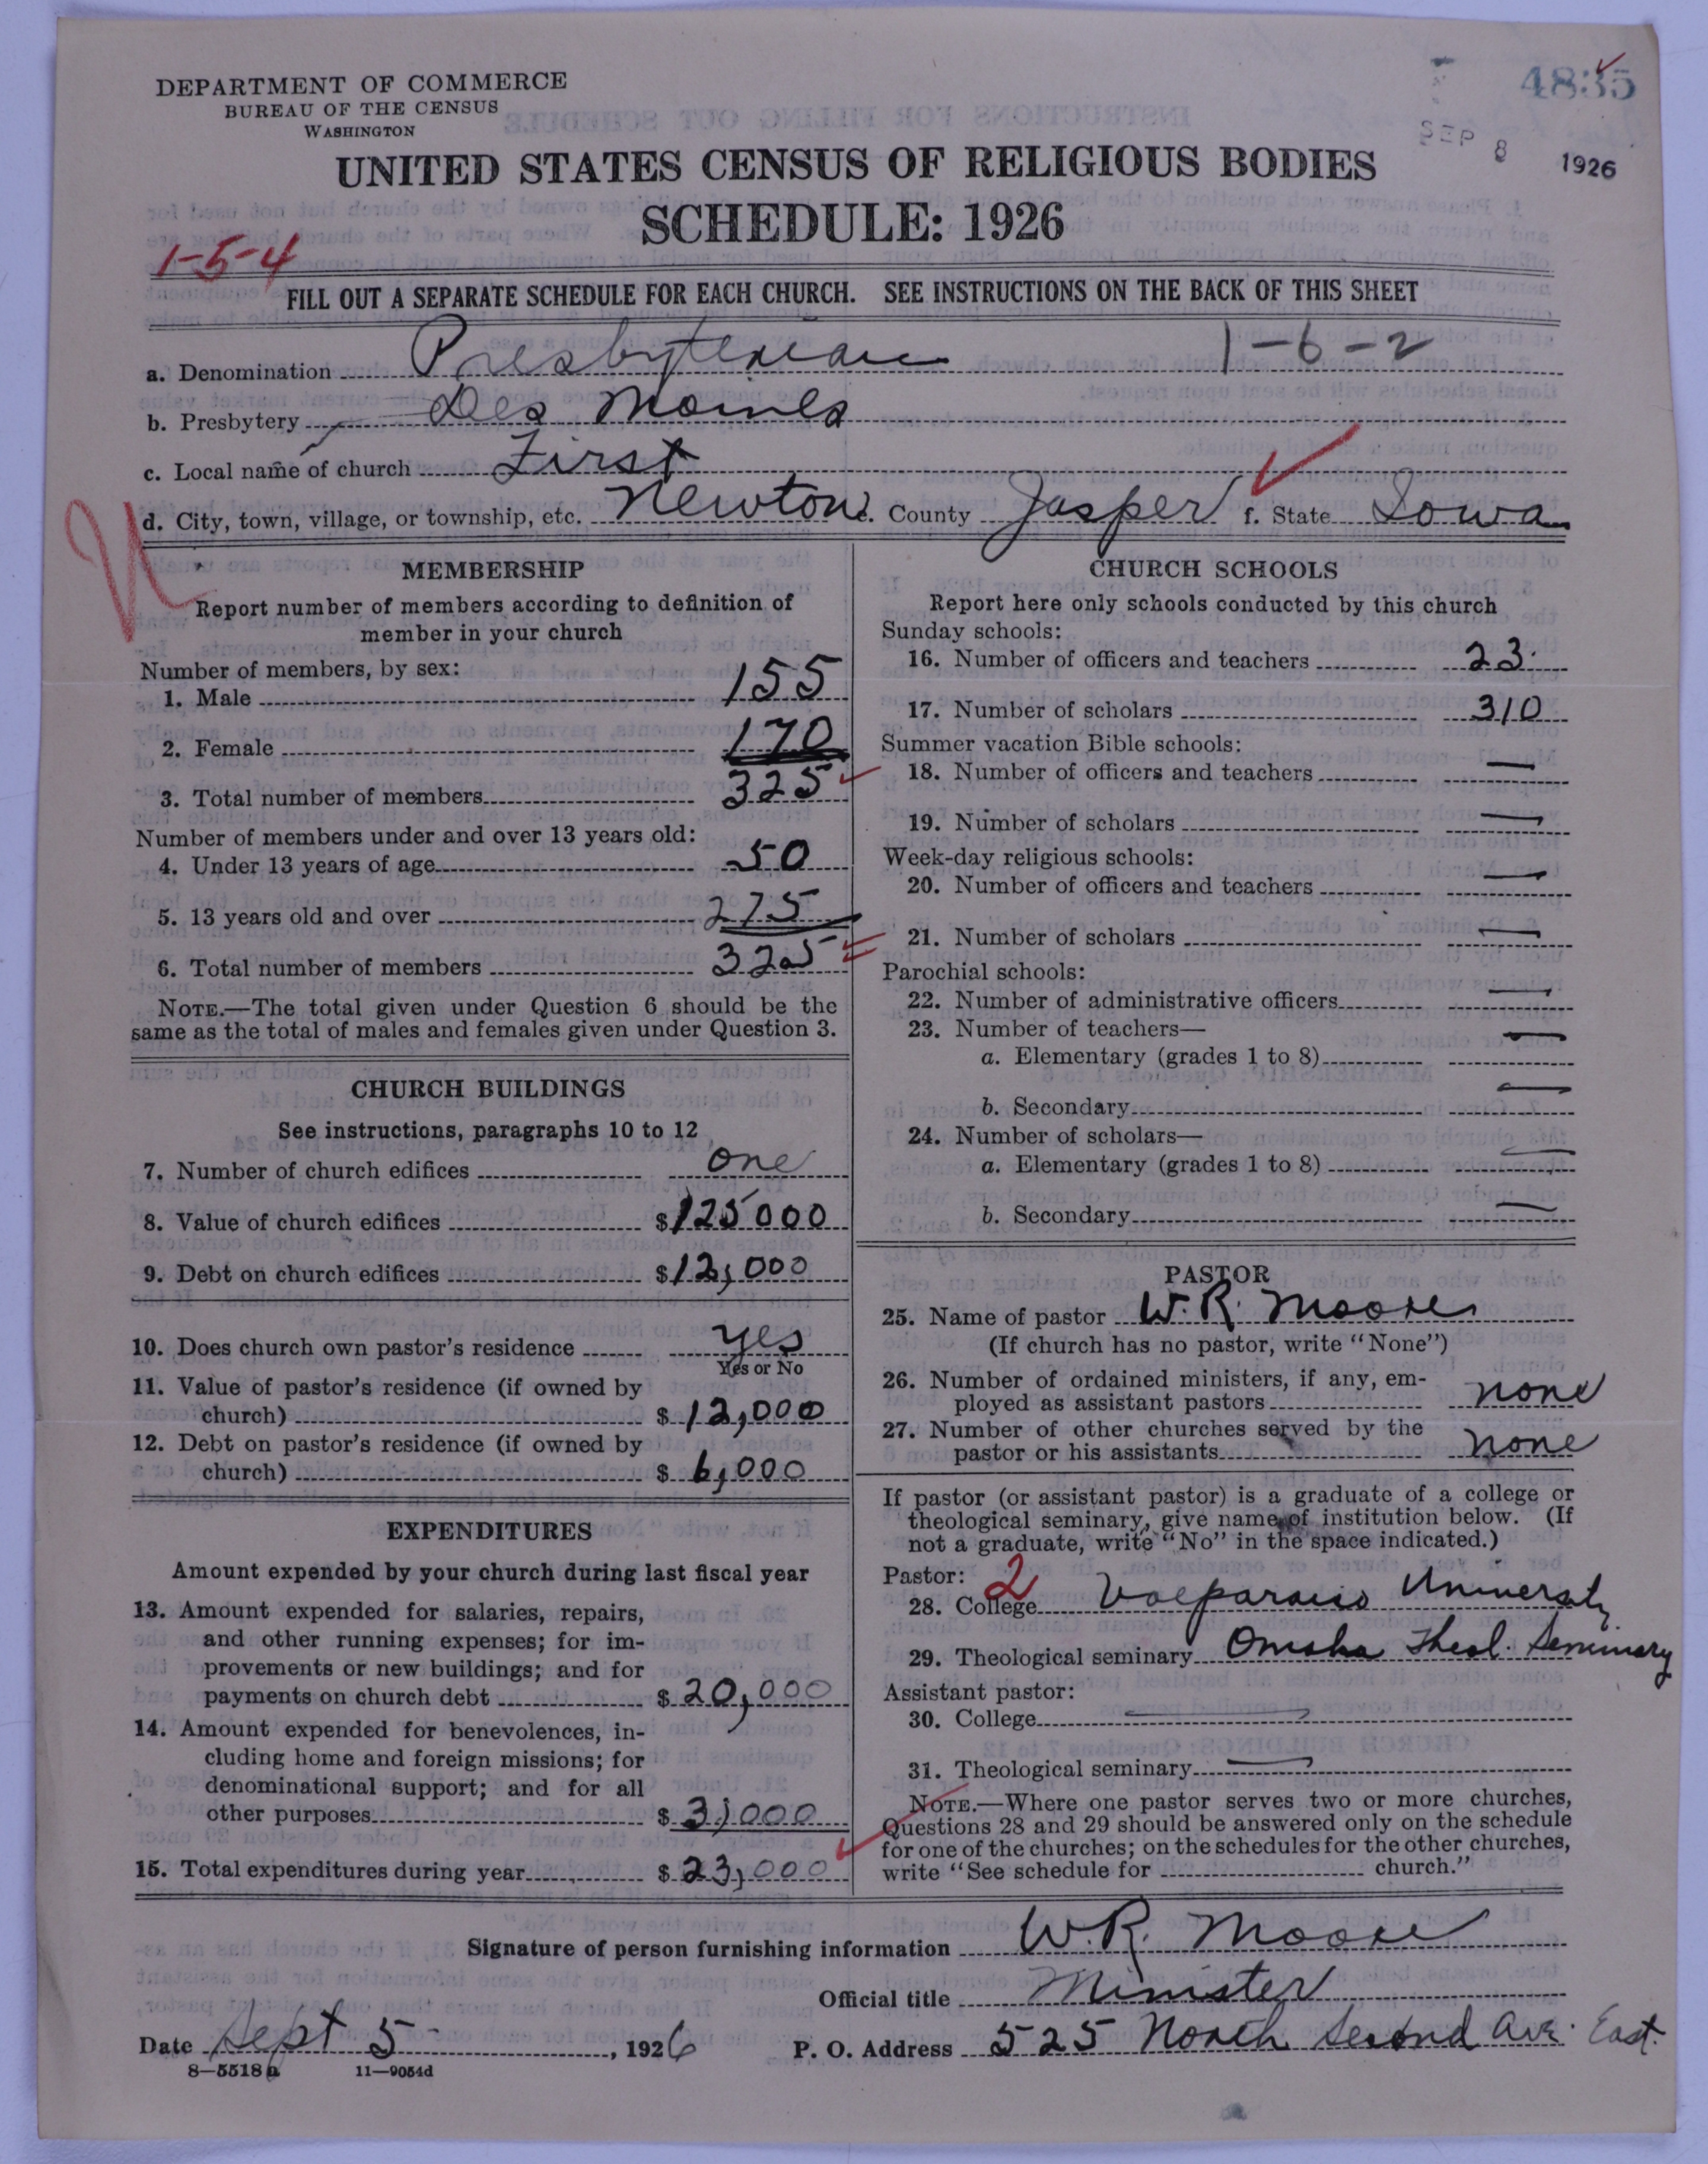 DEPARTMENT OF COMMERCE
BUREAU OF THE CENSUS
WASHINGTON
4835
SEP 8 1926
UNITED STATES CENSUS OF RELIGIOUS BODIES
SCHEDULE: 1926
1-5-4
FILL OUT A SEPARATE SCHEDULE FOR EACH CHURCH. SEE INSTRUCTIONS ON THE BACK OF THIS SHEET
a. Denomination Presbyterian 1-6-2
b. Presbytery Des Moines
c. Local name of church First
d. City, town, village, or township, etc. Newton e. County Jasper f. State Iowa
MEMBERSHIP
Report number of members according to definition of
member in your church
Number of members, by sex:
1. Male 155
2. Female 170
3. Total number of members 325
Number of members under and over 13 years old:
4. Under 13 years of age 50
5. 13 years old and over 275
6. Total number of members 325
NOTE.—The total given under Question 6 should be the
same as the total of males and females given under Question 3.
CHURCH BUILDINGS
See instructions, paragraphs 10 to 12
7. Number of church edifices one
8. Value of church edifices $125000
9. Debt on church edifices $12,000
10. Does church own pastor's residence yes
Yes or No
11. Value of pastor's residence (if owned by
church) $12,000
12. Debt on pastor's residence (if owned by
church) $6,000
EXPENDITURES
Amount expended by your church during last fiscal year
13. Amount expended for salaries, repairs,
and other running expenses; for im-
provements or new buildings; and for
payments on church debt $20,000
14. Amount expended for benevolences, in-
cluding home and foreign missions; for
denominational support; and for all
other purposes $3,000
15. Total expenditures during year $23,000
CHURCH SCHOOLS
Report here only schools conducted by this church
Sunday schools:
16. Number of officers and teachers 23
17. Number of scholars 310
Summer vacation Bible schools:
18. Number of officers and teachers —
19. Number of scholars —
Week-day religious schools:
20. Number of officers and teachers —
21. Number of scholars —
Parochial schools:
22. Number of administrative officers —
23. Number of teachers—
a. Elementary (grades 1 to 8) —
b. Secondary —
24. Number of scholars—
a. Elementary (grades 1 to 8) —
b. Secondary —
PASTOR
25. Name of pastor W. R. Moore
(If church has no pastor, write "None")
26. Number of ordained ministers, if any, em-
ployed as assistant pastors none
27. Number of other churches served by the
pastor or his assistants none
If pastor (or assistant pastor) is a graduate of a college or
theological seminary, give name of institution below. (If
not a graduate, write "No" in the space indicated.)
Pastor: 2
28. College Valparaiso University
29. Theological seminary Omaha Theol. Seminary
Assistant pastor:
30. College —
31. Theological seminary —
NOTE.—Where one pastor serves two or more churches,
Questions 28 and 29 should be answered only on the schedule
for one of the churches; on the schedules for the other churches,
write "See schedule for church."
Signature of person furnishing information W. R. Moore
Official title Minister
Date Sept 5, 1926 P. O. Address 525 North Second Ave. East.
8—5518a 11—9054d